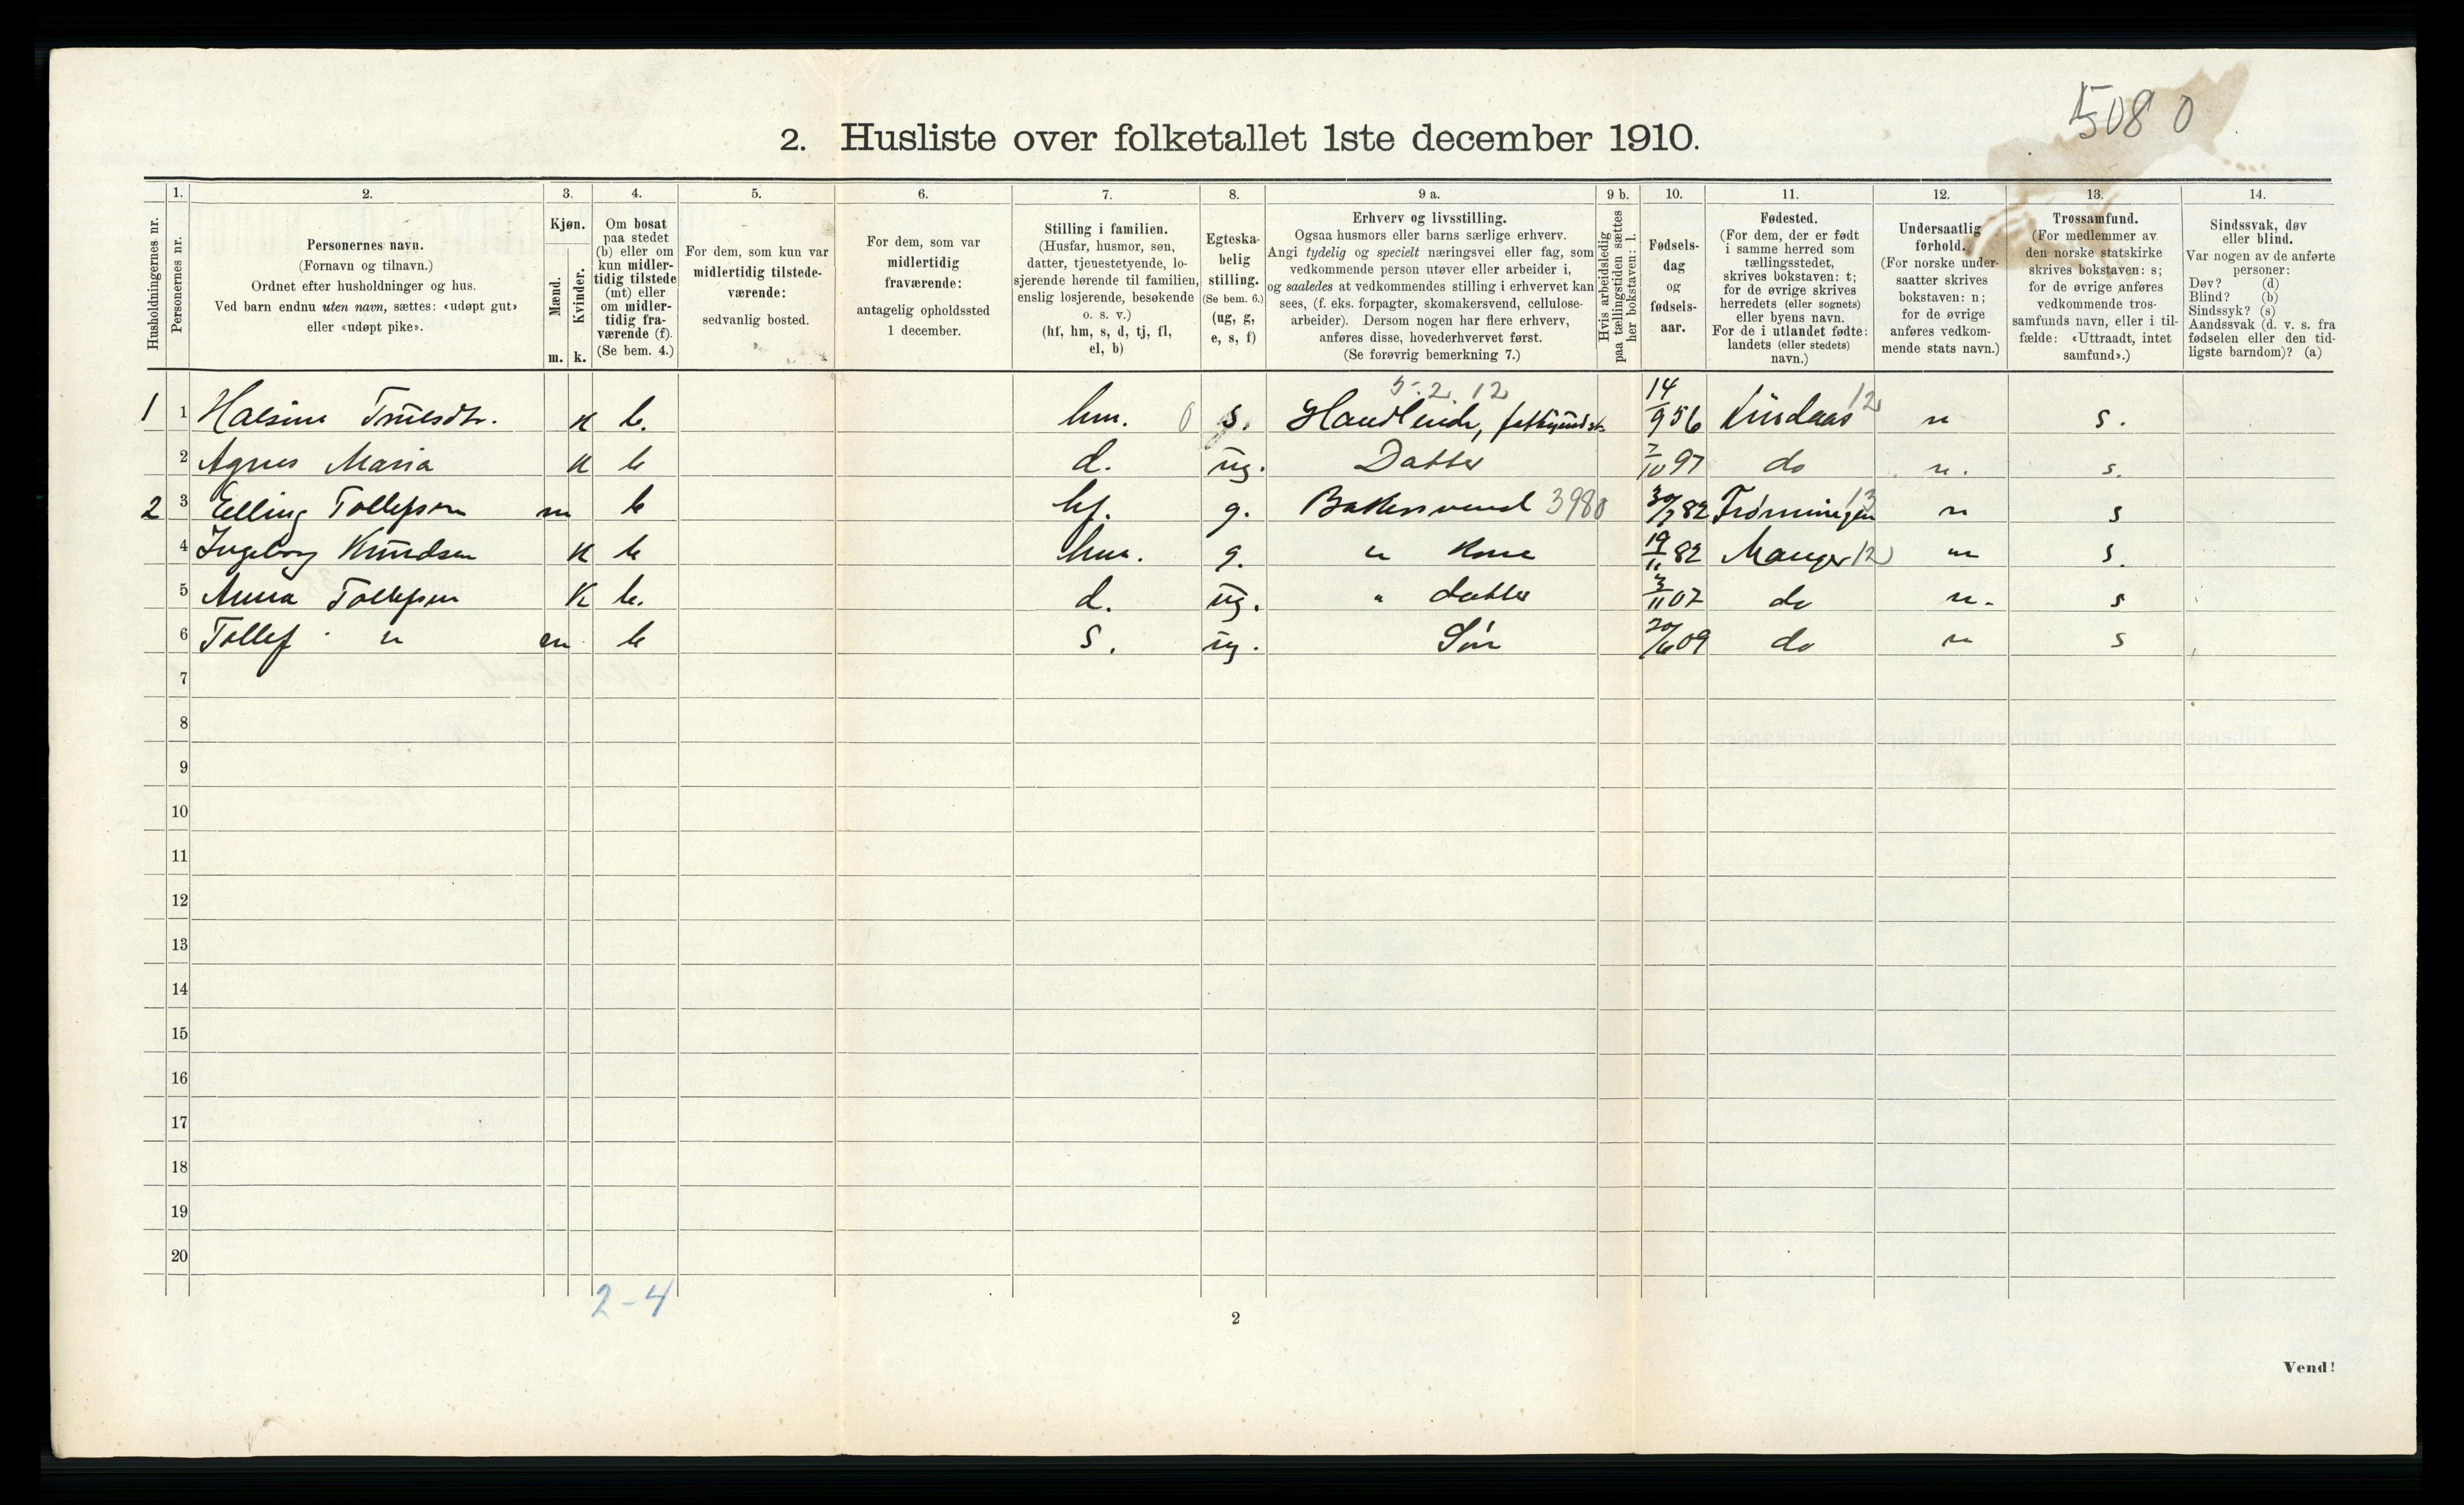 5080
2. Husliste over folketallet 1ste december 1910.
Husholdningernes nr.
1. Personernes nr.
2. Personernes navn.
(Fornavn og tilnavn.)
Ordnet efter husholdninger og hus.
Ved barn endnu uten navn, sættes: «udøpt gut»
eller «udøpt pike».
3. Kjøn.
Mænd. Kvinder.
m. k.
4. Om bosat
paa stedet
(b) eller om
kun midler-
tidig tilstede
(mt) eller
om midler-
tidig fra-
værende (f).
(Se bem. 4.)
5. For dem, som kun var
midlertidig tilstede-
værende:
sedvanlig bosted.
6. For dem, som var
midlertidig
fraværende:
antagelig opholdssted
1 december.
7. Stilling i familien.
(Husfar, husmor, søn,
datter, tjenestetyende, lo-
sjerende hørende til familien,
enslig losjerende, besøkende
o. s. v.)
(hf, hm, s, d, tj, fl,
el, b)
8. Egteska-
belig
stilling.
(Se bem. 6.)
(ug, g,
e, s, f)
9 a. Erhverv og livsstilling.
Ogsaa husmors eller barns særlige erhverv.
Angi tydelig og specielt næringsvei eller fag, som
vedkommende person utøver eller arbeider i,
og saaledes at vedkommendes stilling i erhvervet kan
sees, (f. eks. forpagter, skomakersvend, cellulose-
arbeider). Dersom nogen har flere erhverv,
anføres disse, hovederhvervet først.
(Se forøvrig bemerkning 7.)
9 b. Hvis arbeidsledig
paa tællingstiden sættes
her bokstaven: l.
10. Fødsels-
dag
og
fødsels-
aar.
11. Fødested.
(For dem, der er født
i samme herred som
tællingsstedet,
skrives bokstaven: t;
for de øvrige skrives
herredets (eller sognets)
eller byens navn.
For de i utlandet fødte:
landets (eller stedets)
navn.)
12. Undersaatlig
forhold.
(For norske under-
saatter skrives
bokstaven: n;
for de øvrige
anføres vedkom-
mende stats navn.)
13. Trossamfund.
(For medlemmer av
den norske statskirke
skrives bokstaven: s;
for de øvrige anføres
vedkommende tros-
samfunds navn, eller i til-
fælde: «Uttraadt, intet
samfund».)
14. Sindssvak, døv
eller blind.
Var nogen av de anførte
personer:
Døv? (d)
Blind? (b)
Sindssyk? (s)
Aandssvak (d. v. s. fra
fødselen eller den tid-
ligste barndom)? (a)
5.2.12
1 1 Halsine Truesdtr. k b. hm. 0 s. 14/9 56 12 n s.
2 Agnes Maria k b d. ug. Datter 7/10 97 do n. s.
2 3 Elling Tollefsen m b hf. g. Bakersvend 3980 30/7 82 13 n s
4 Ingeborg Knudsen k b hm. g. " Kone 19/11 82 Manger 12 n s.
5 Anna Tollefsen K b. d. ug. " datter 3/11 07 do n. s
6 Tollef " m b s. ug. Søn 20/6 09 do n s
7
8
9
10
11
12
13
14
15
16
17
18
19
20
2-4
2
Vend!